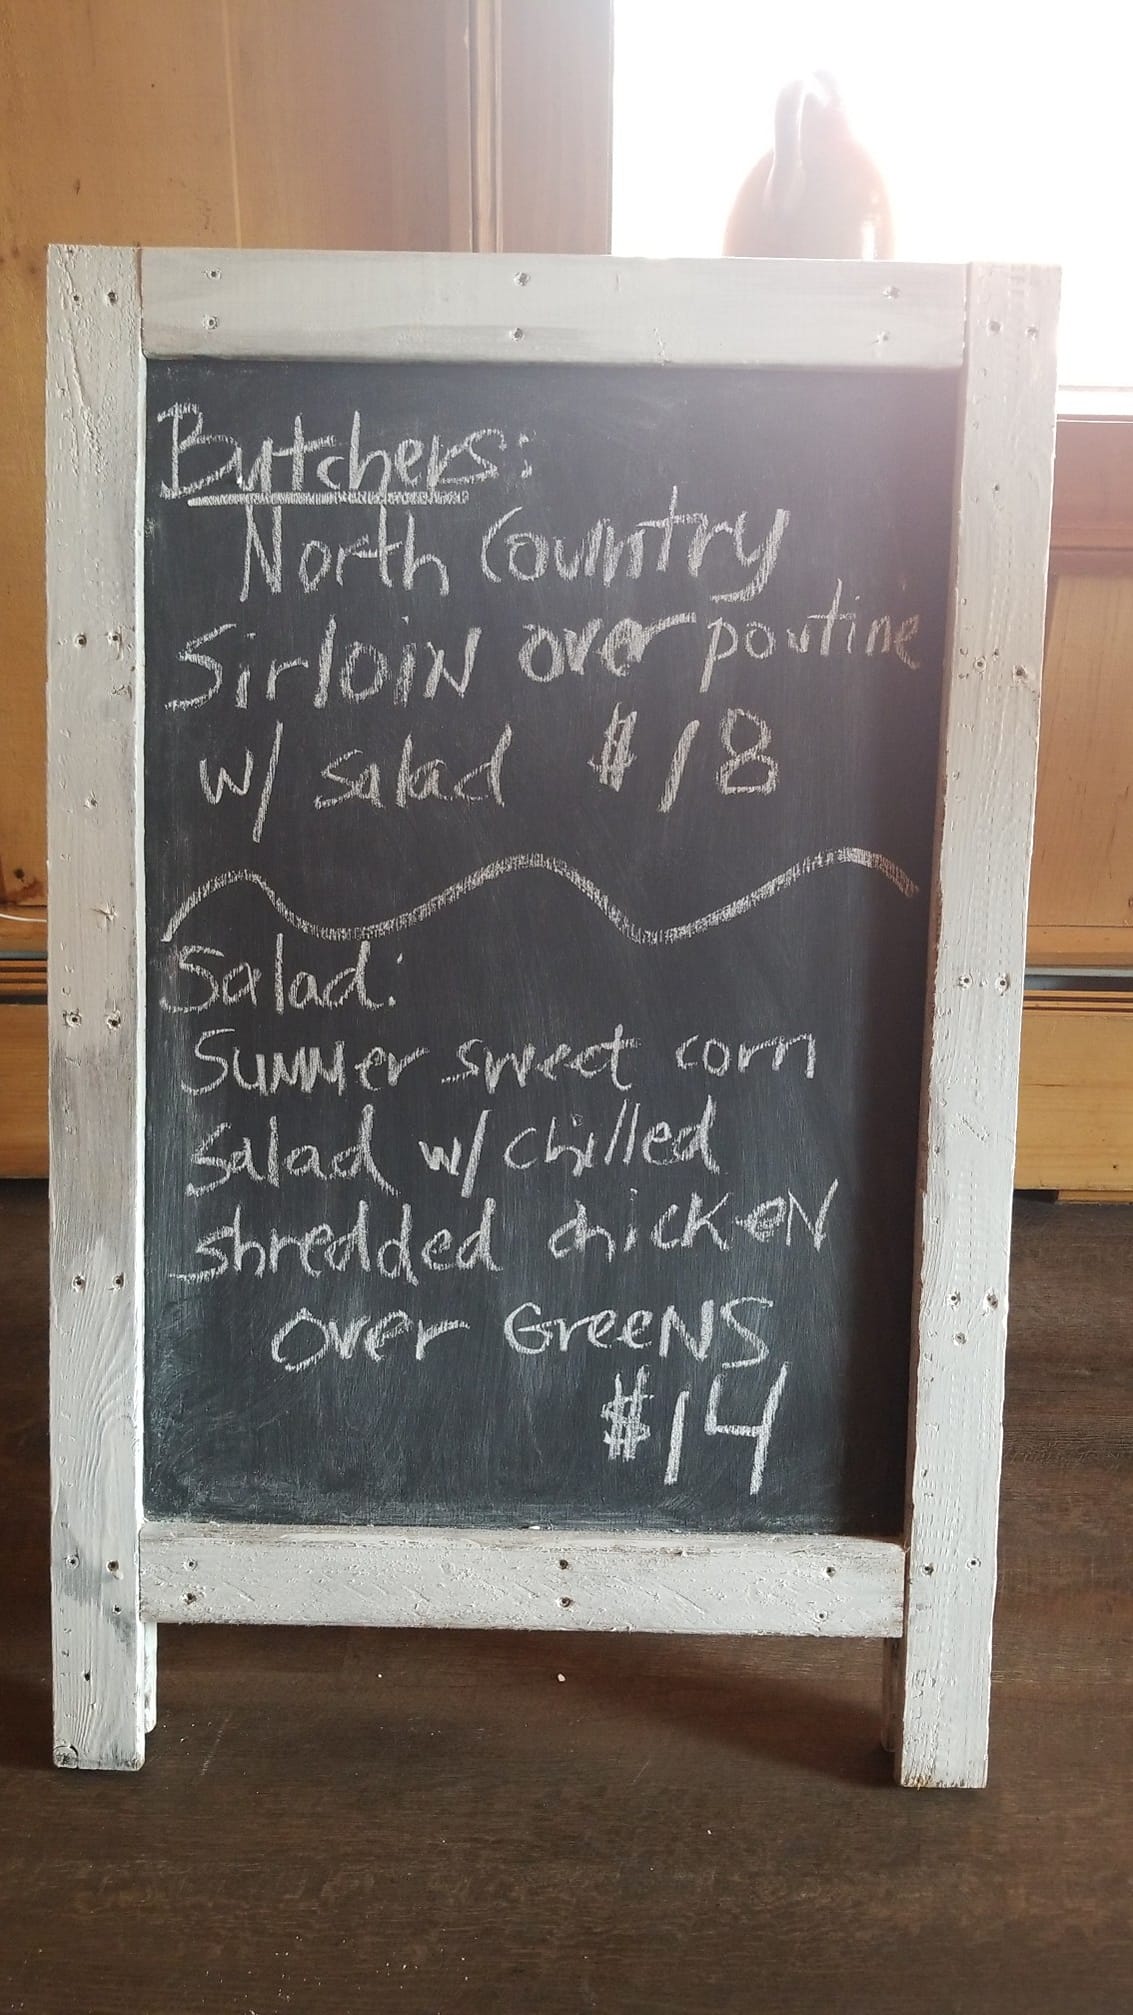 Butchers:
North Country
Sirloin over poutine
w/ salad $18
Salad:
Summer sweet corn
salad w/ chilled
shredded chicken
over GreeNS
$14